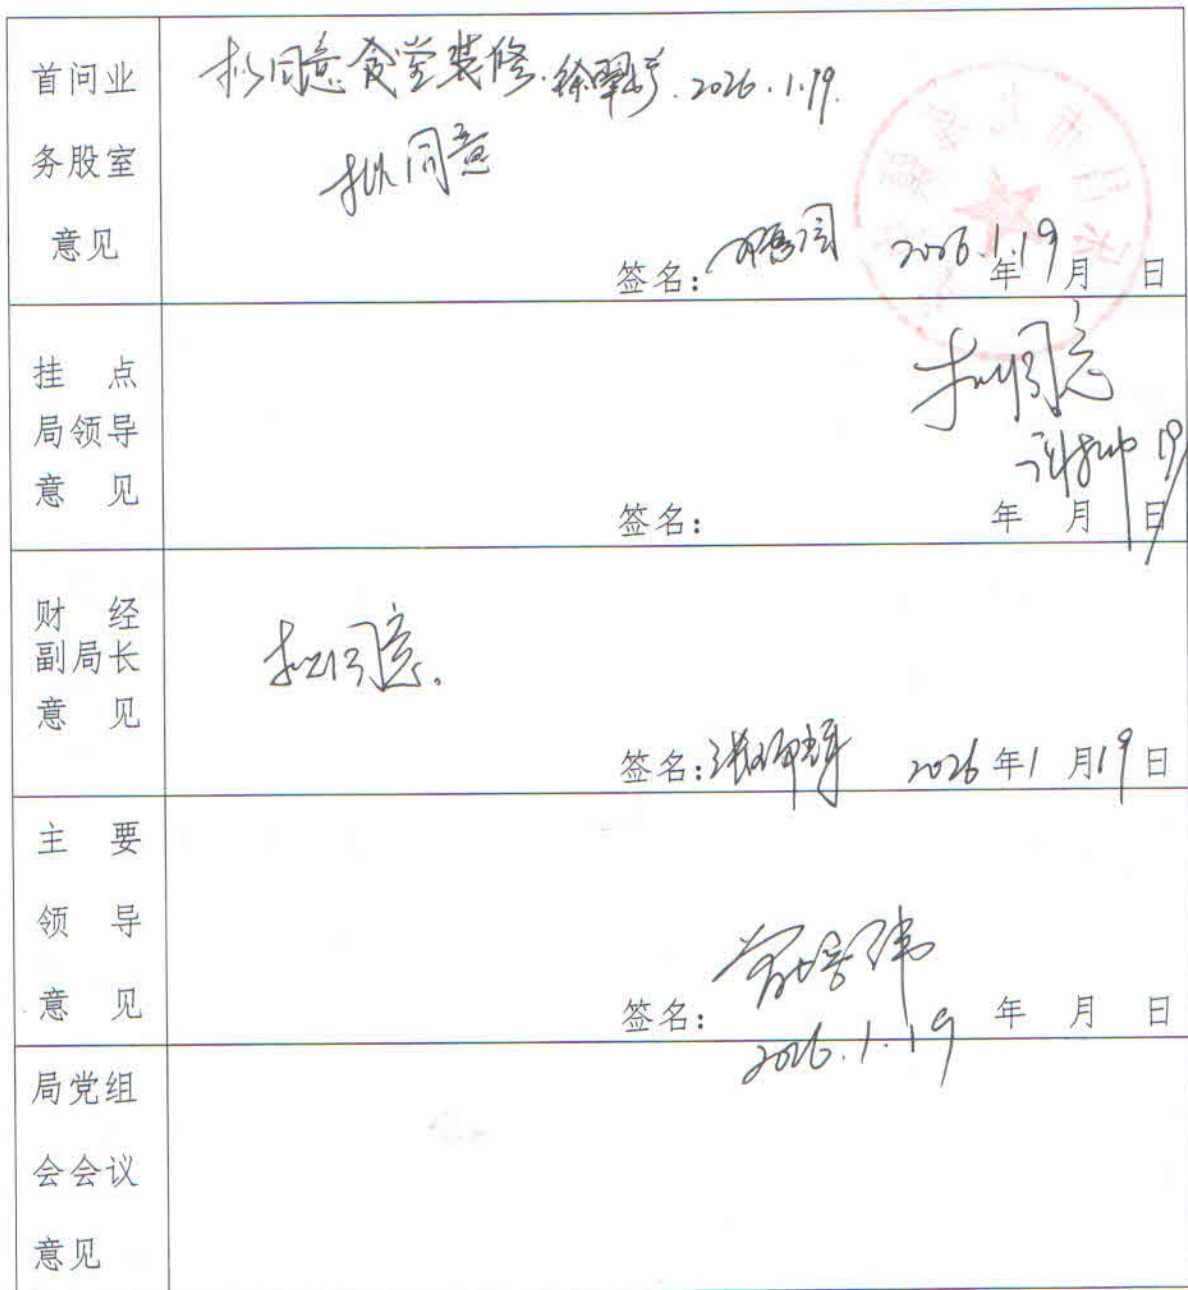 首问业
务股室
意见
拟同意食堂装修. 2026.1.19.
拟同意
签名： 2026.1.19 年 月 日
挂 点
局领导
意 见
拟同意
19/
签名： 年 月 日
财 经
副局长
意 见
拟同意。
签名： 2026年1月19日
主 要
领 导
意 见
签名： 年 月 日
2026.1.19
局党组
会会议
意见